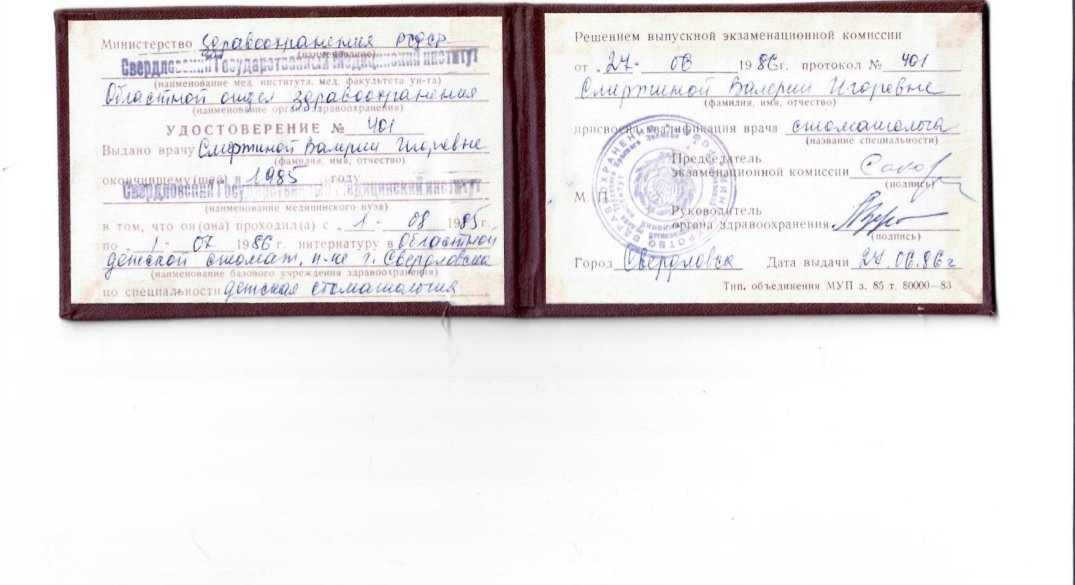 Министерство здравоохранения РСФСР
(наименование)
Свердловский Государственный Медицинский институт
(наименование мед. института, мед. факультета ун-та)
Областной отдел здравоохранения
(наименование органа здравоохранения)
УДОСТОВЕРЕНИЕ № 401
Выдано врачу Смертиной Валерии Игоревне
(фамилия, имя, отчество)
окончившему(шей) в 1985 году
Свердловский Государственный Медицинский институт
(наименование медицинского вуза)
в том, что он(она) проходил(а) с „1 - 08 1985г.
по „1 - 07 1986г. интернатуру в Областной
детской стомат. п-ке г. Свердловска
(наименование базового учреждения здравоохранения)
по специальности детская стоматология
Решением выпускной экзаменационной комиссии
от „27 - 06 1986г. протокол № 401
Смертиной Валерии Игоревне
(фамилия, имя, отчество)
присвоена квалификация врача стоматолога
(название специальности)
Председатель
экзаменационной комиссии
(подпись)
М. П.
Руководитель
органа здравоохранения
(подпись)
Город Свердловск Дата выдачи 27.06.86г
Тип. объединения МУП з. 85 т. 80000—83